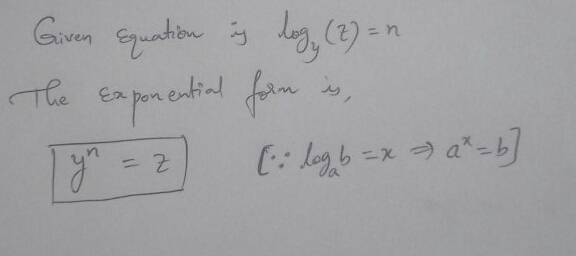 Given Equation is log_y (z) = n
The Exponential form is,
yⁿ = z [∵ log_a b = x ⇒ aˣ = b]